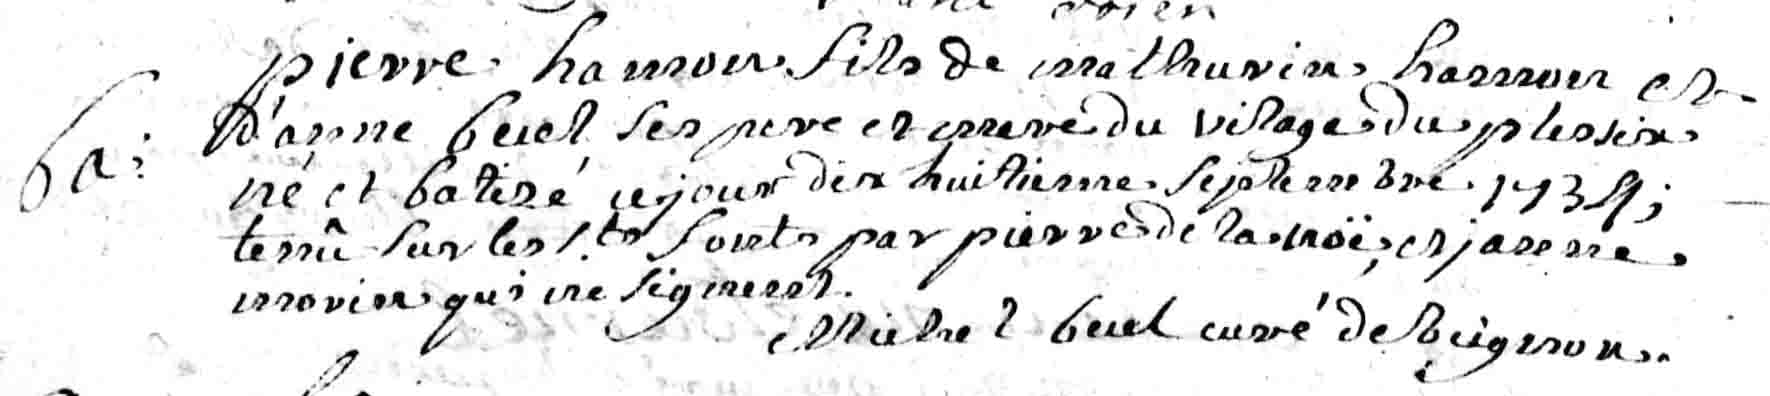 ba:
pierre hamon fils de mathurin hamon et
d'anne buel ses pere et mere du vilage du plessix
né et batizé ce jour dix huitieme septembre 1734;
tenû sur les s.ts fonts par pierre de la noë, et janne
morin qui ne signent.
Michel buel curé de beignon.